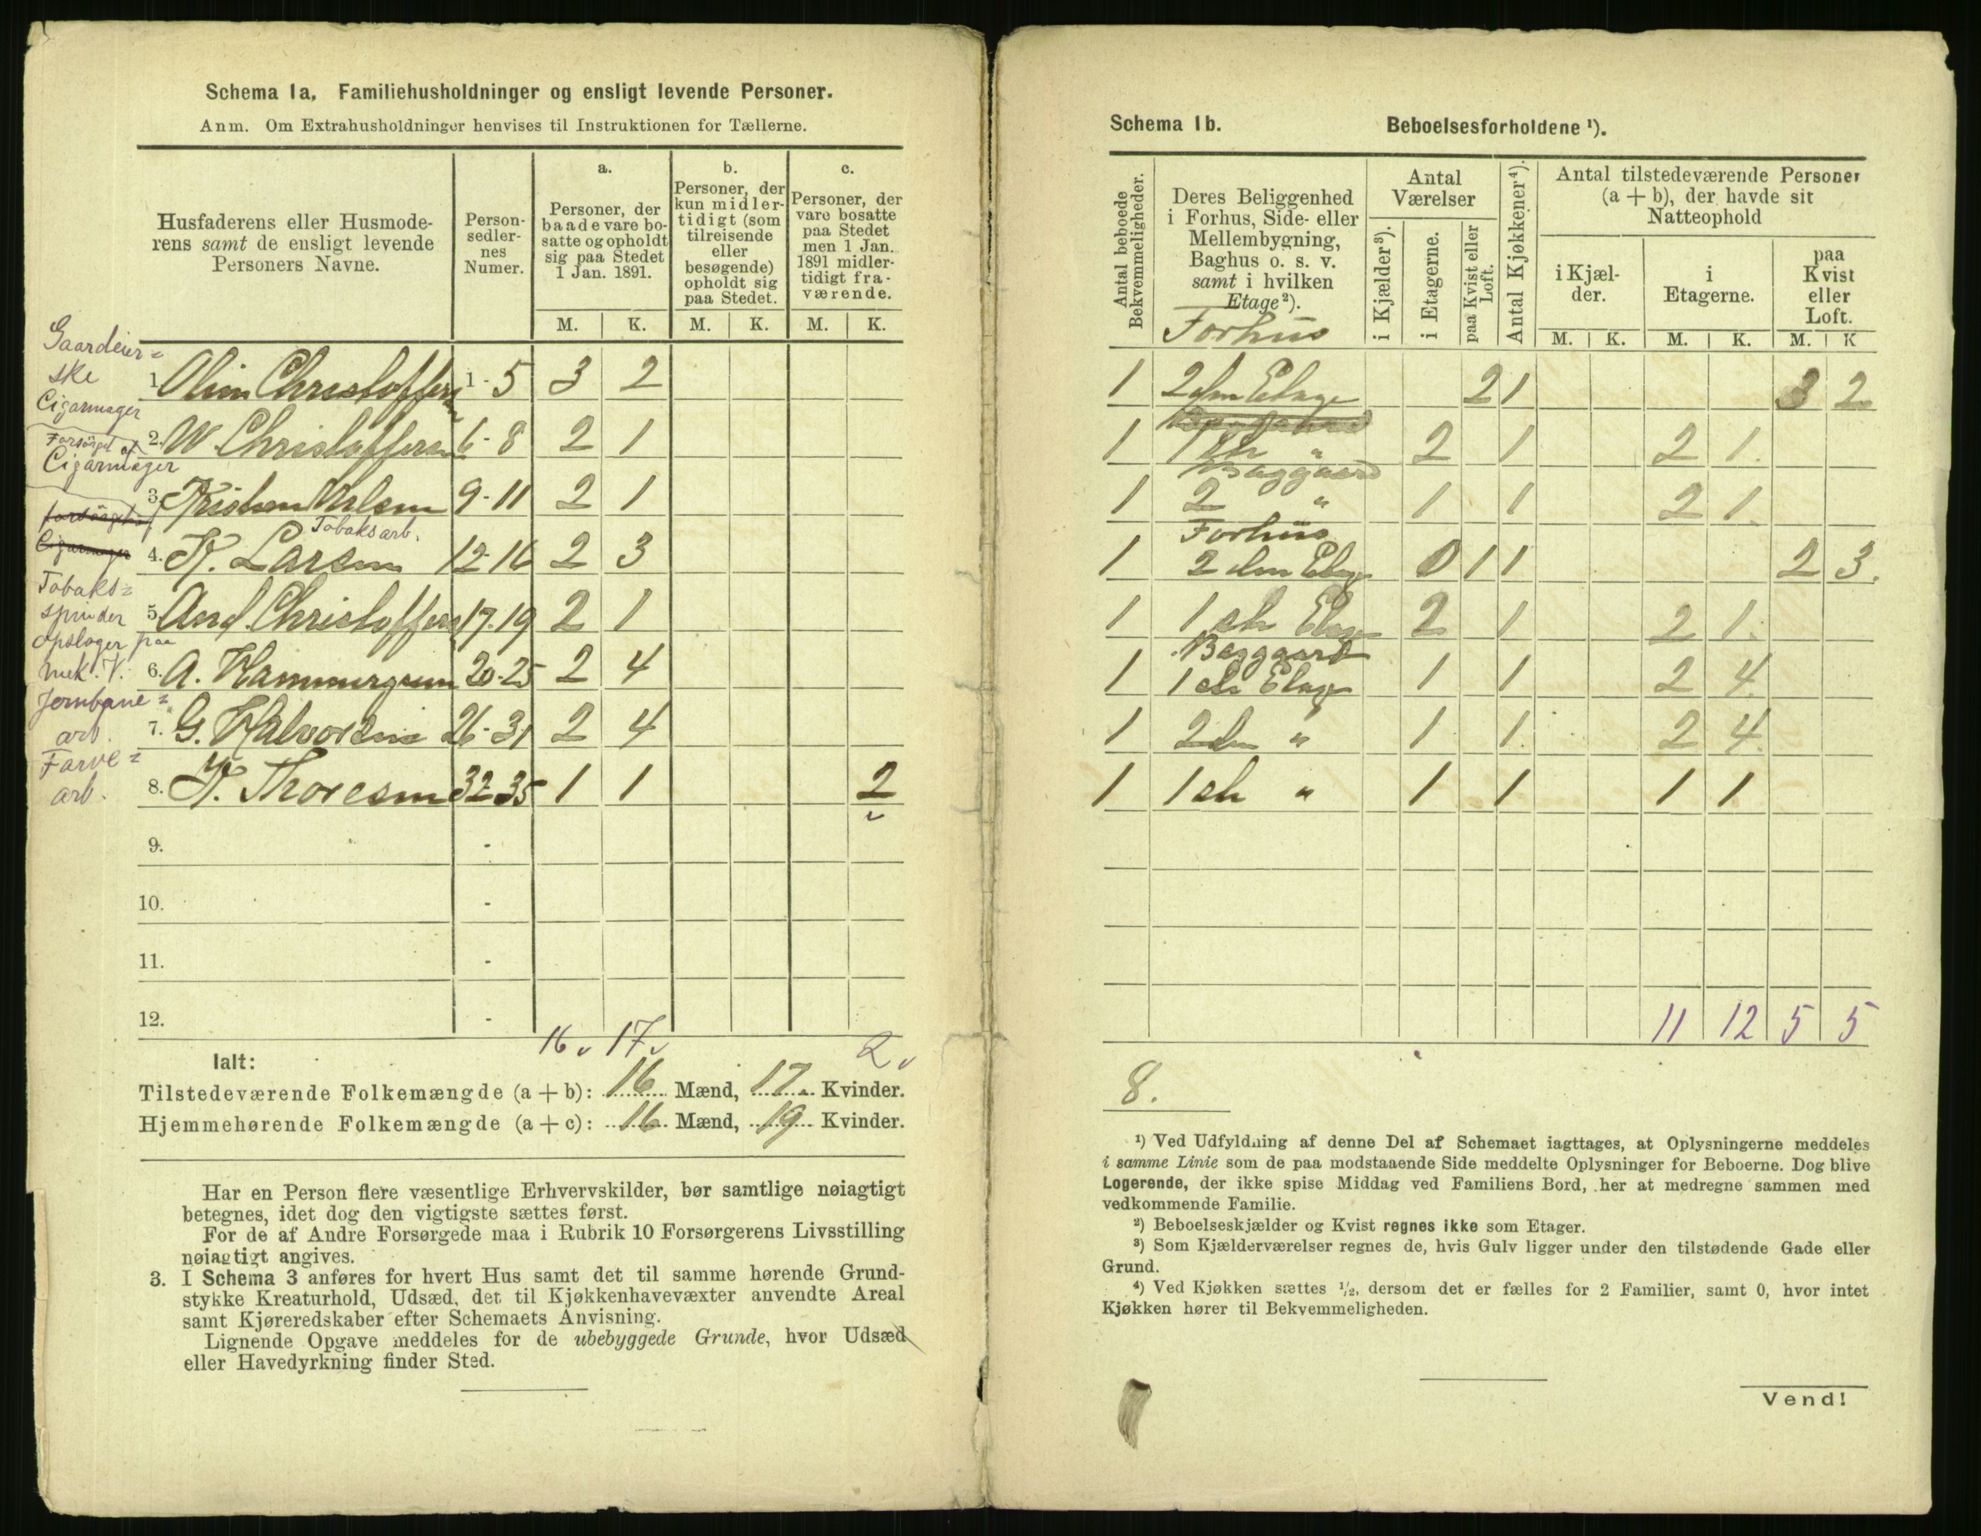 Schema 1a. Familiehusholdninger og ensligt levende Personer.
Anm. Om Extrahusholdninger henvises til Instruktionen for Tællerne.
Husfaderens eller Husmode-
rens samt de ensligt levende
Personers Navne.
Person-
sedler-
nes
Numer.
a.
Personer, der
baade vare bo-
satte og opholdt
sig paa Stedet
1 Jan. 1891.
b.
Personer, der
kun midler-
tidigt (som
tilreisende
eller
besøgende)
opholdt sig
paa Stedet.
c.
Personer, der
vare bosatte
paa Stedet
men 1 Jan.
1891 midler-
tidigt fra-
værende.
M. K. M. K. M. K.
Gaardeier=
ske
1. Christoffersen 1-5 3 2
Cigarmager
2. W Christoffersen 6-8 2 1
Forsørget af
Cigarmager
3. 9-11 2 1
Cigarmager
Tobaksarb.
4. K. Larsen 12-16 2 3
Tobaks=
spinder
5. And. Christoffersen 17-19 2 1
Opslager paa
mek. V.
6. A. Hammergren 20-25 2 4
Jernbane=
arb.
7. G. Halvorsen 26-31 2 4
Farve=
arb.
8. K. Thoresen 32-35 1 1 2
9. -
10. -
11. -
12. -
16 17 2
Ialt:
Tilstedeværende Folkemængde (a + b): 16 Mænd, 17 Kvinder.
Hjemmehørende Folkemængde (a + c): 16 Mænd, 19 Kvinder.
Har en Person flere væsentlige Erhvervskilder, bør samtlige nøiagtigt
betegnes, idet dog den vigtigste sættes først.
For de af Andre Forsørgede maa i Rubrik 10 Forsørgerens Livsstilling
nøiagtigt angives.
3. I Schema 3 anføres for hvert Hus samt det til samme hørende Grund-
stykke Kreaturhold, Udsæd, det til Kjøkkenhavevæxter anvendte Areal
samt Kjøreredskaber efter Schemaets Anvisning.
Lignende Opgave meddeles for de ubebyggede Grunde, hvor Udsæd
eller Havedyrkning finder Sted.
Schema 1b. Beboelsesforholdene ¹).
Antal beboede
Bekvemmeligheder.
Deres Beliggenhed
i Forhus, Side- eller
Mellembygning,
Baghus o. s. v.
samt i hvilken
Etage²).
Antal
Værelser
i Kjælder³).
i Etagerne.
paa Kvist eller
Loft.
Antal Kjøkkener⁴).
Antal tilstedeværende Personer
(a + b), der havde sit
Natteophold
i Kjæl-
der.
i
Etagerne.
paa
Kvist
eller
Loft.
M. K. M. K. M. K
Forhus
1 2den Etage 2 1 3 2
1 1ste " 2 1 2 1
Baggaard
1 2 " 1 1 2 1
Forhus
1 2den Etage 0 1 1 2 3
1 1ste Etage 2 1 2 1
Baggaard
1 1ste Etage 1 1 2 4
1 2den " 1 1 2 4
1 1ste " 1 1 1 1
11 12 5 5
8.
¹) Ved Udfyldning af denne Del af Schemaet iagttages, at Oplysningerne meddeles
i samme Linie som de paa modstaaende Side meddelte Oplysninger for Beboerne. Dog blive
Logerende, der ikke spise Middag ved Familiens Bord, her at medregne sammen med
vedkommende Familie.
²) Beboelseskjælder og Kvist regnes ikke som Etager.
³) Som Kjælderværelser regnes de, hvis Gulv ligger under den tilstødende Gade eller
Grund.
⁴) Ved Kjøkken sættes ½, dersom det er fælles for 2 Familier, samt 0, hvor intet
Kjøkken hører til Bekvemmeligheden.
Vend!